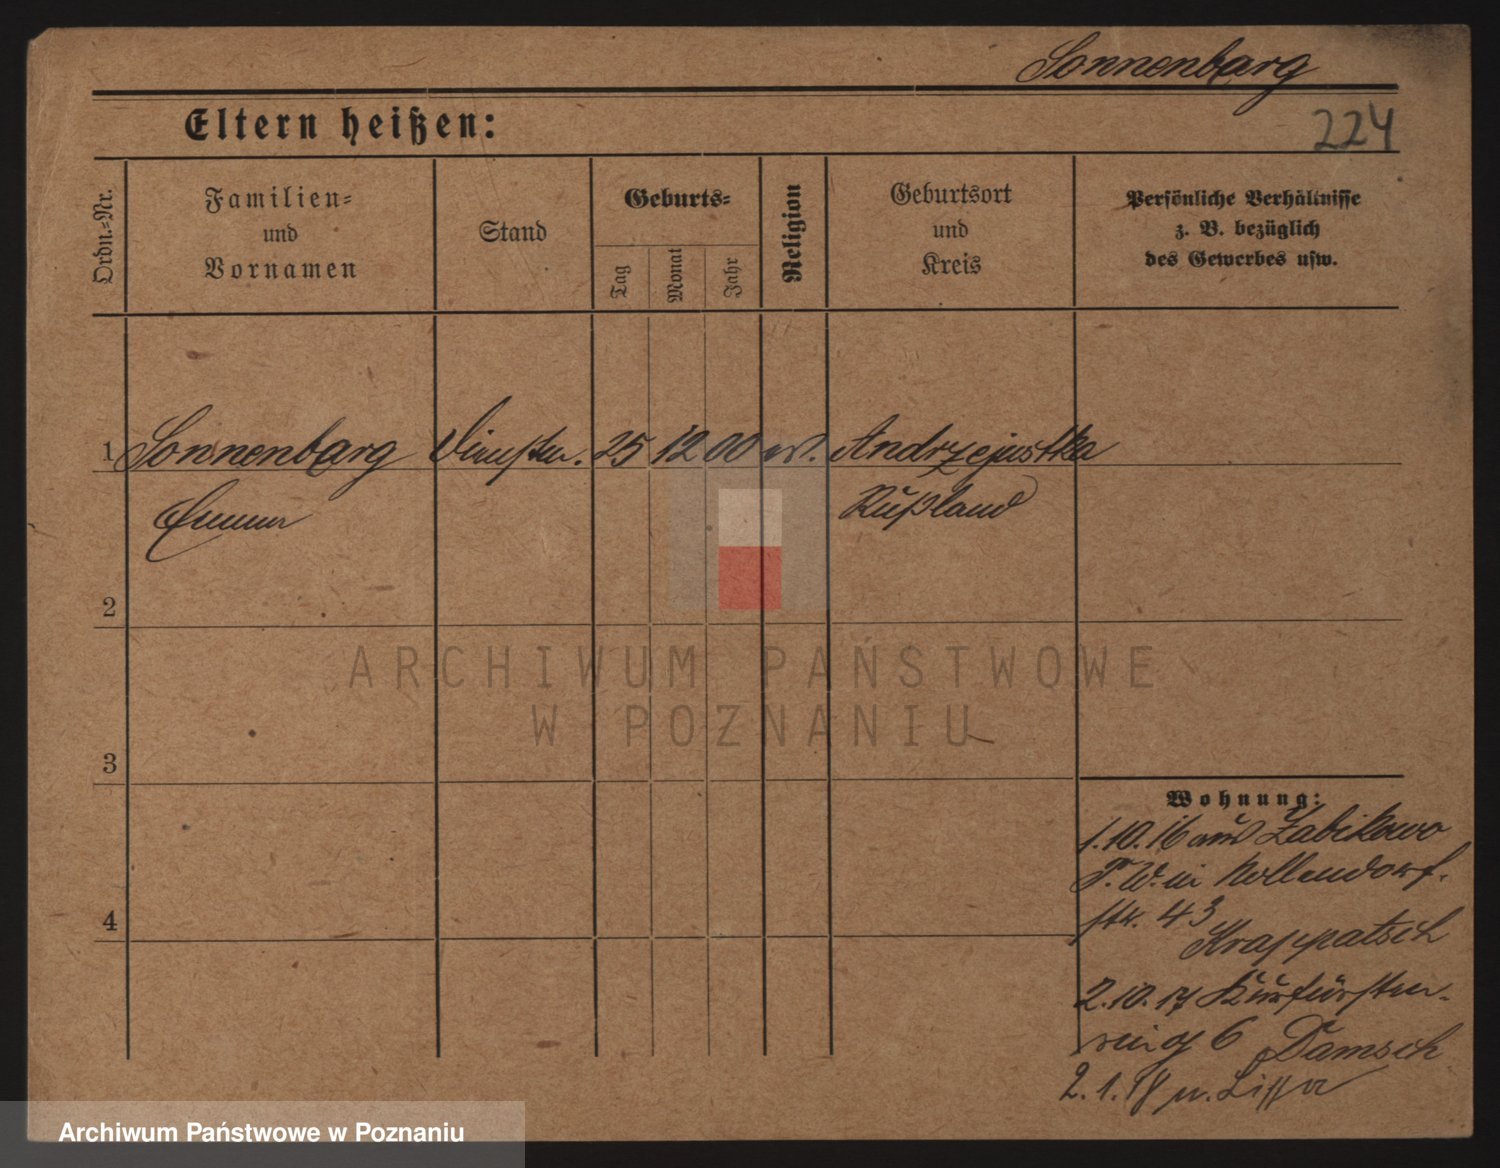 Sonnenbarg
224
Eltern heißen:
Ordn.-Nr.
Familien-
und
Vornamen
Stand
Geburts-
Tag
Monat
Jahr
Religion
Geburtsort
und
Kreis
Persönliche Verhältnisse
z. B. bezüglich
des Gewerbes usw.
1 Sonnenbarg 25 12 00 ev. Andrzejustka
Emma Rußland
2
3
4
Wohnung:
1.10.16 aus Zabikowo
i. W. in Nollendorf-
str. 43
Krappatsch
2.10.17 Kurfürsten-
ring 6 Damsch
2.1.18 n. Lissa
ARCHIWUM PAŃSTWOWE
W POZNANIU
Archiwum Państwowe w Poznaniu